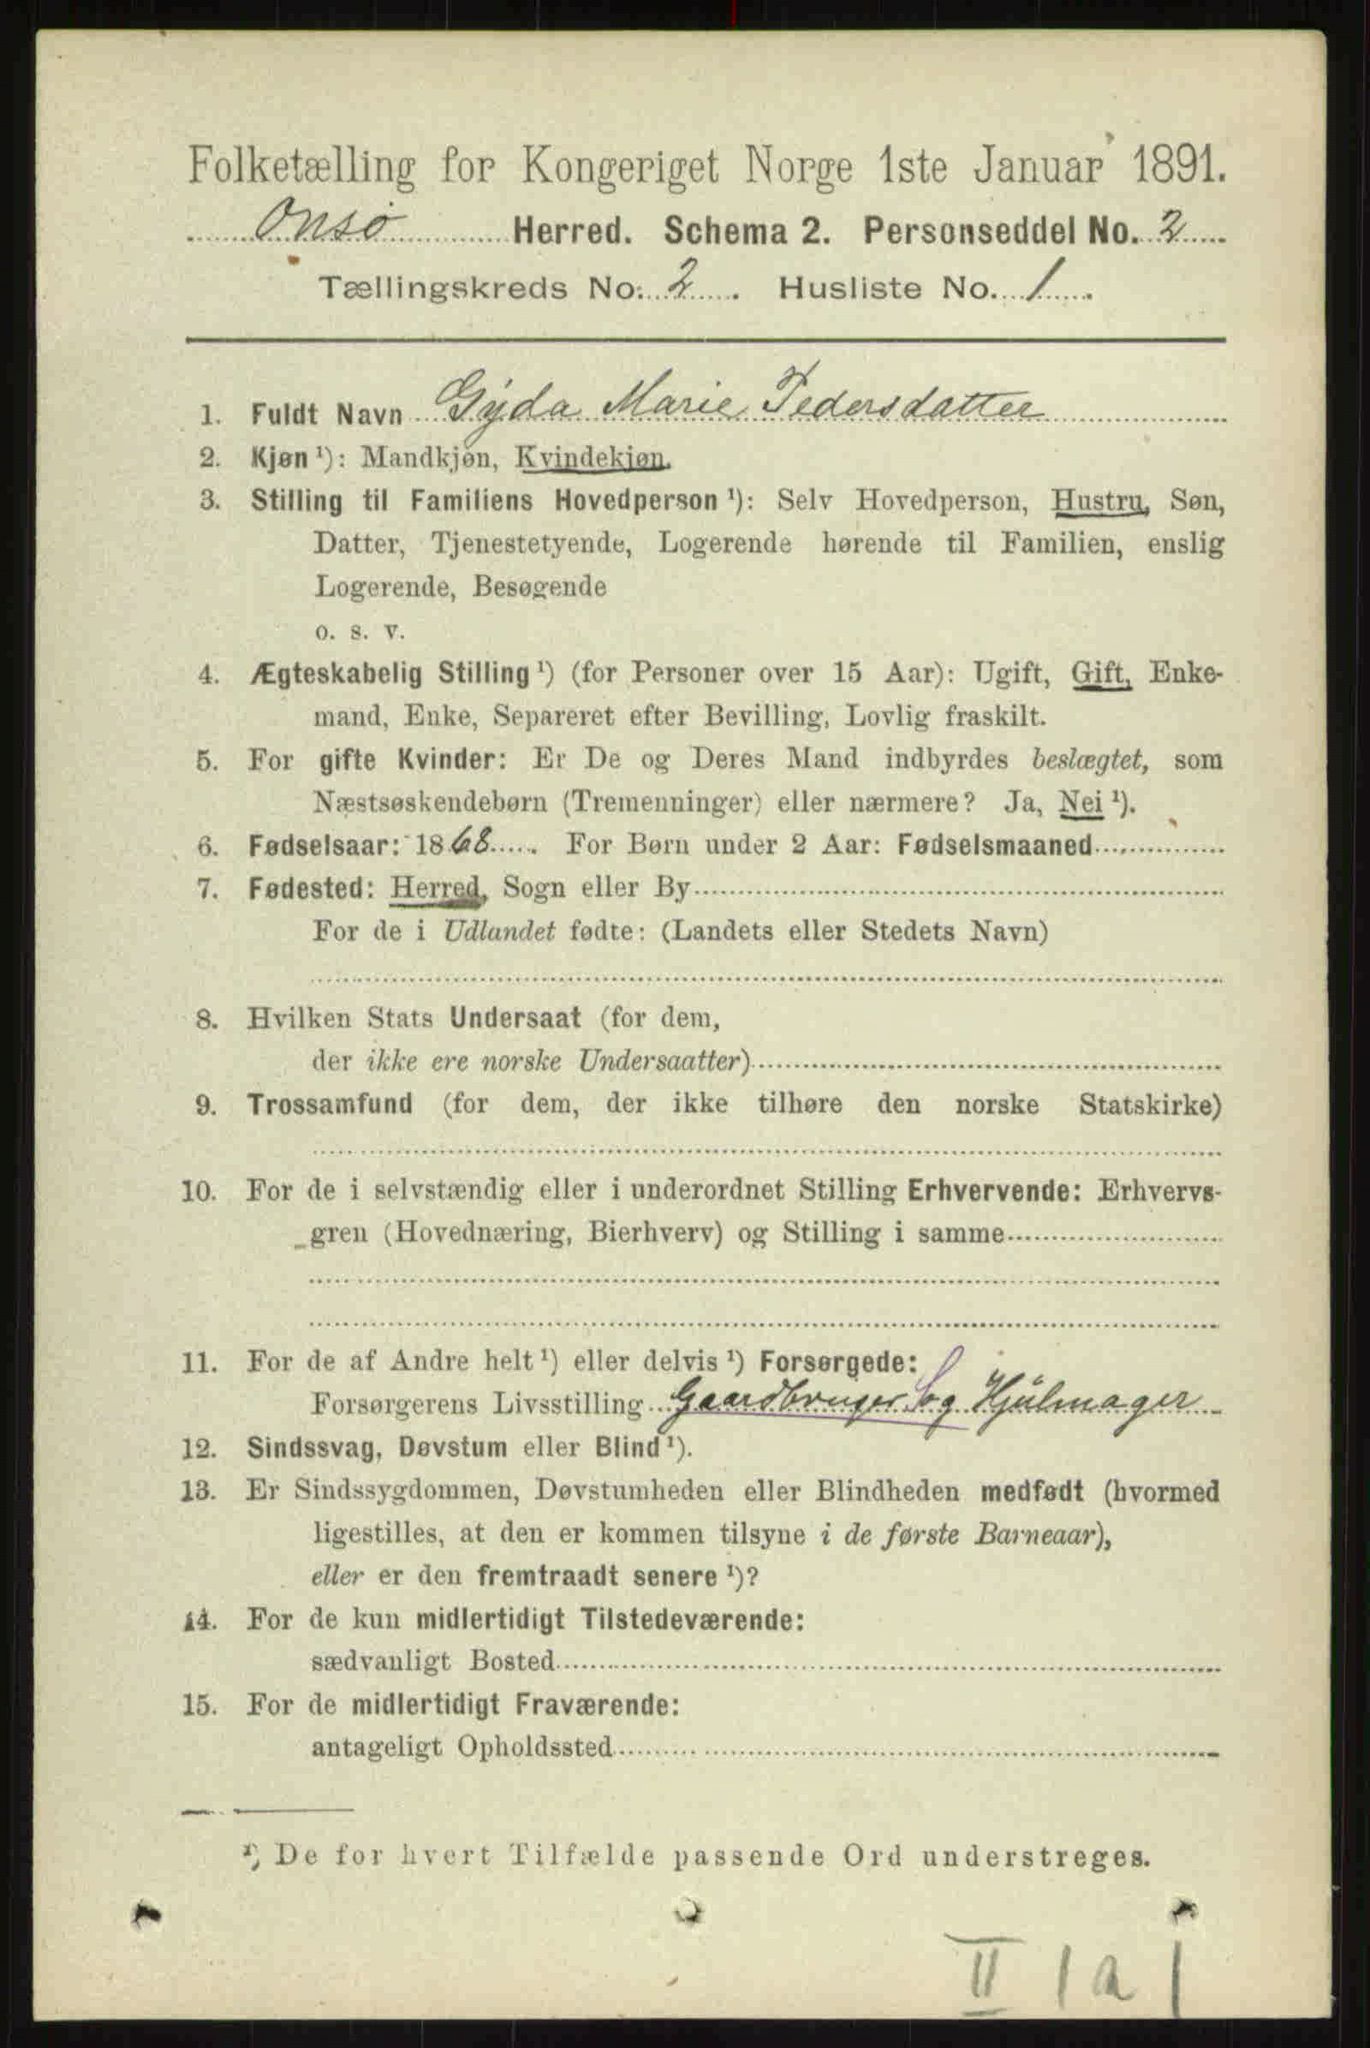 Folketælling for Kongeriget Norge 1ste Januar 1891.
Onsø Herred. Schema 2. Personseddel No. 2
Tællingskreds No. 2. Husliste No. 1.
1. Fuldt Navn Gyda Marie Pedersdatter
2. Kjøn ¹): Mandkjøn, Kvindekjøn.
3. Stilling til Familiens Hovedperson ¹): Selv Hovedperson, Hustru, Søn,
Datter, Tjenestetyende, Logerende hørende til Familien, enslig
Logerende, Besøgende
o. s. v.
4. Ægteskabelig Stilling ¹) (for Personer over 15 Aar): Ugift, Gift, Enke-
mand, Enke, Separeret efter Bevilling, Lovlig fraskilt.
5. For gifte Kvinder: Er De og Deres Mand indbyrdes beslægtet, som
Næstsøskendebørn (Tremenninger) eller nærmere? Ja, Nei ¹).
6. Fødselsaar: 1868. For Børn under 2 Aar: Fødselsmaaned
7. Fødested: Herred, Sogn eller By
For de i Udlandet fødte: (Landets eller Stedets Navn)
8. Hvilken Stats Undersaat (for dem,
der ikke ere norske Undersaatter)
9. Trossamfund (for dem, der ikke tilhøre den norske Statskirke)
10. For de i selvstændig eller i underordnet Stilling Erhvervende: Erhvervs-
gren (Hovednæring, Bierhverv) og Stilling i samme
11. For de af Andre helt ¹) eller delvis ¹) Forsørgede:
Forsørgerens Livsstilling Gaardbruger og Hjulmager
12. Sindssvag, Døvstum eller Blind ¹).
13. Er Sindssygdommen, Døvstumheden eller Blindheden medfødt (hvormed
ligestilles, at den er kommen tilsyne i de første Barneaar),
eller er den fremtraadt senere ¹)?
14. For de kun midlertidigt Tilstedeværende:
sædvanligt Bosted
15. For de midlertidigt Fraværende:
antageligt Opholdssted
¹) De for hvert Tilfælde passende Ord understreges.
II 1 a 1